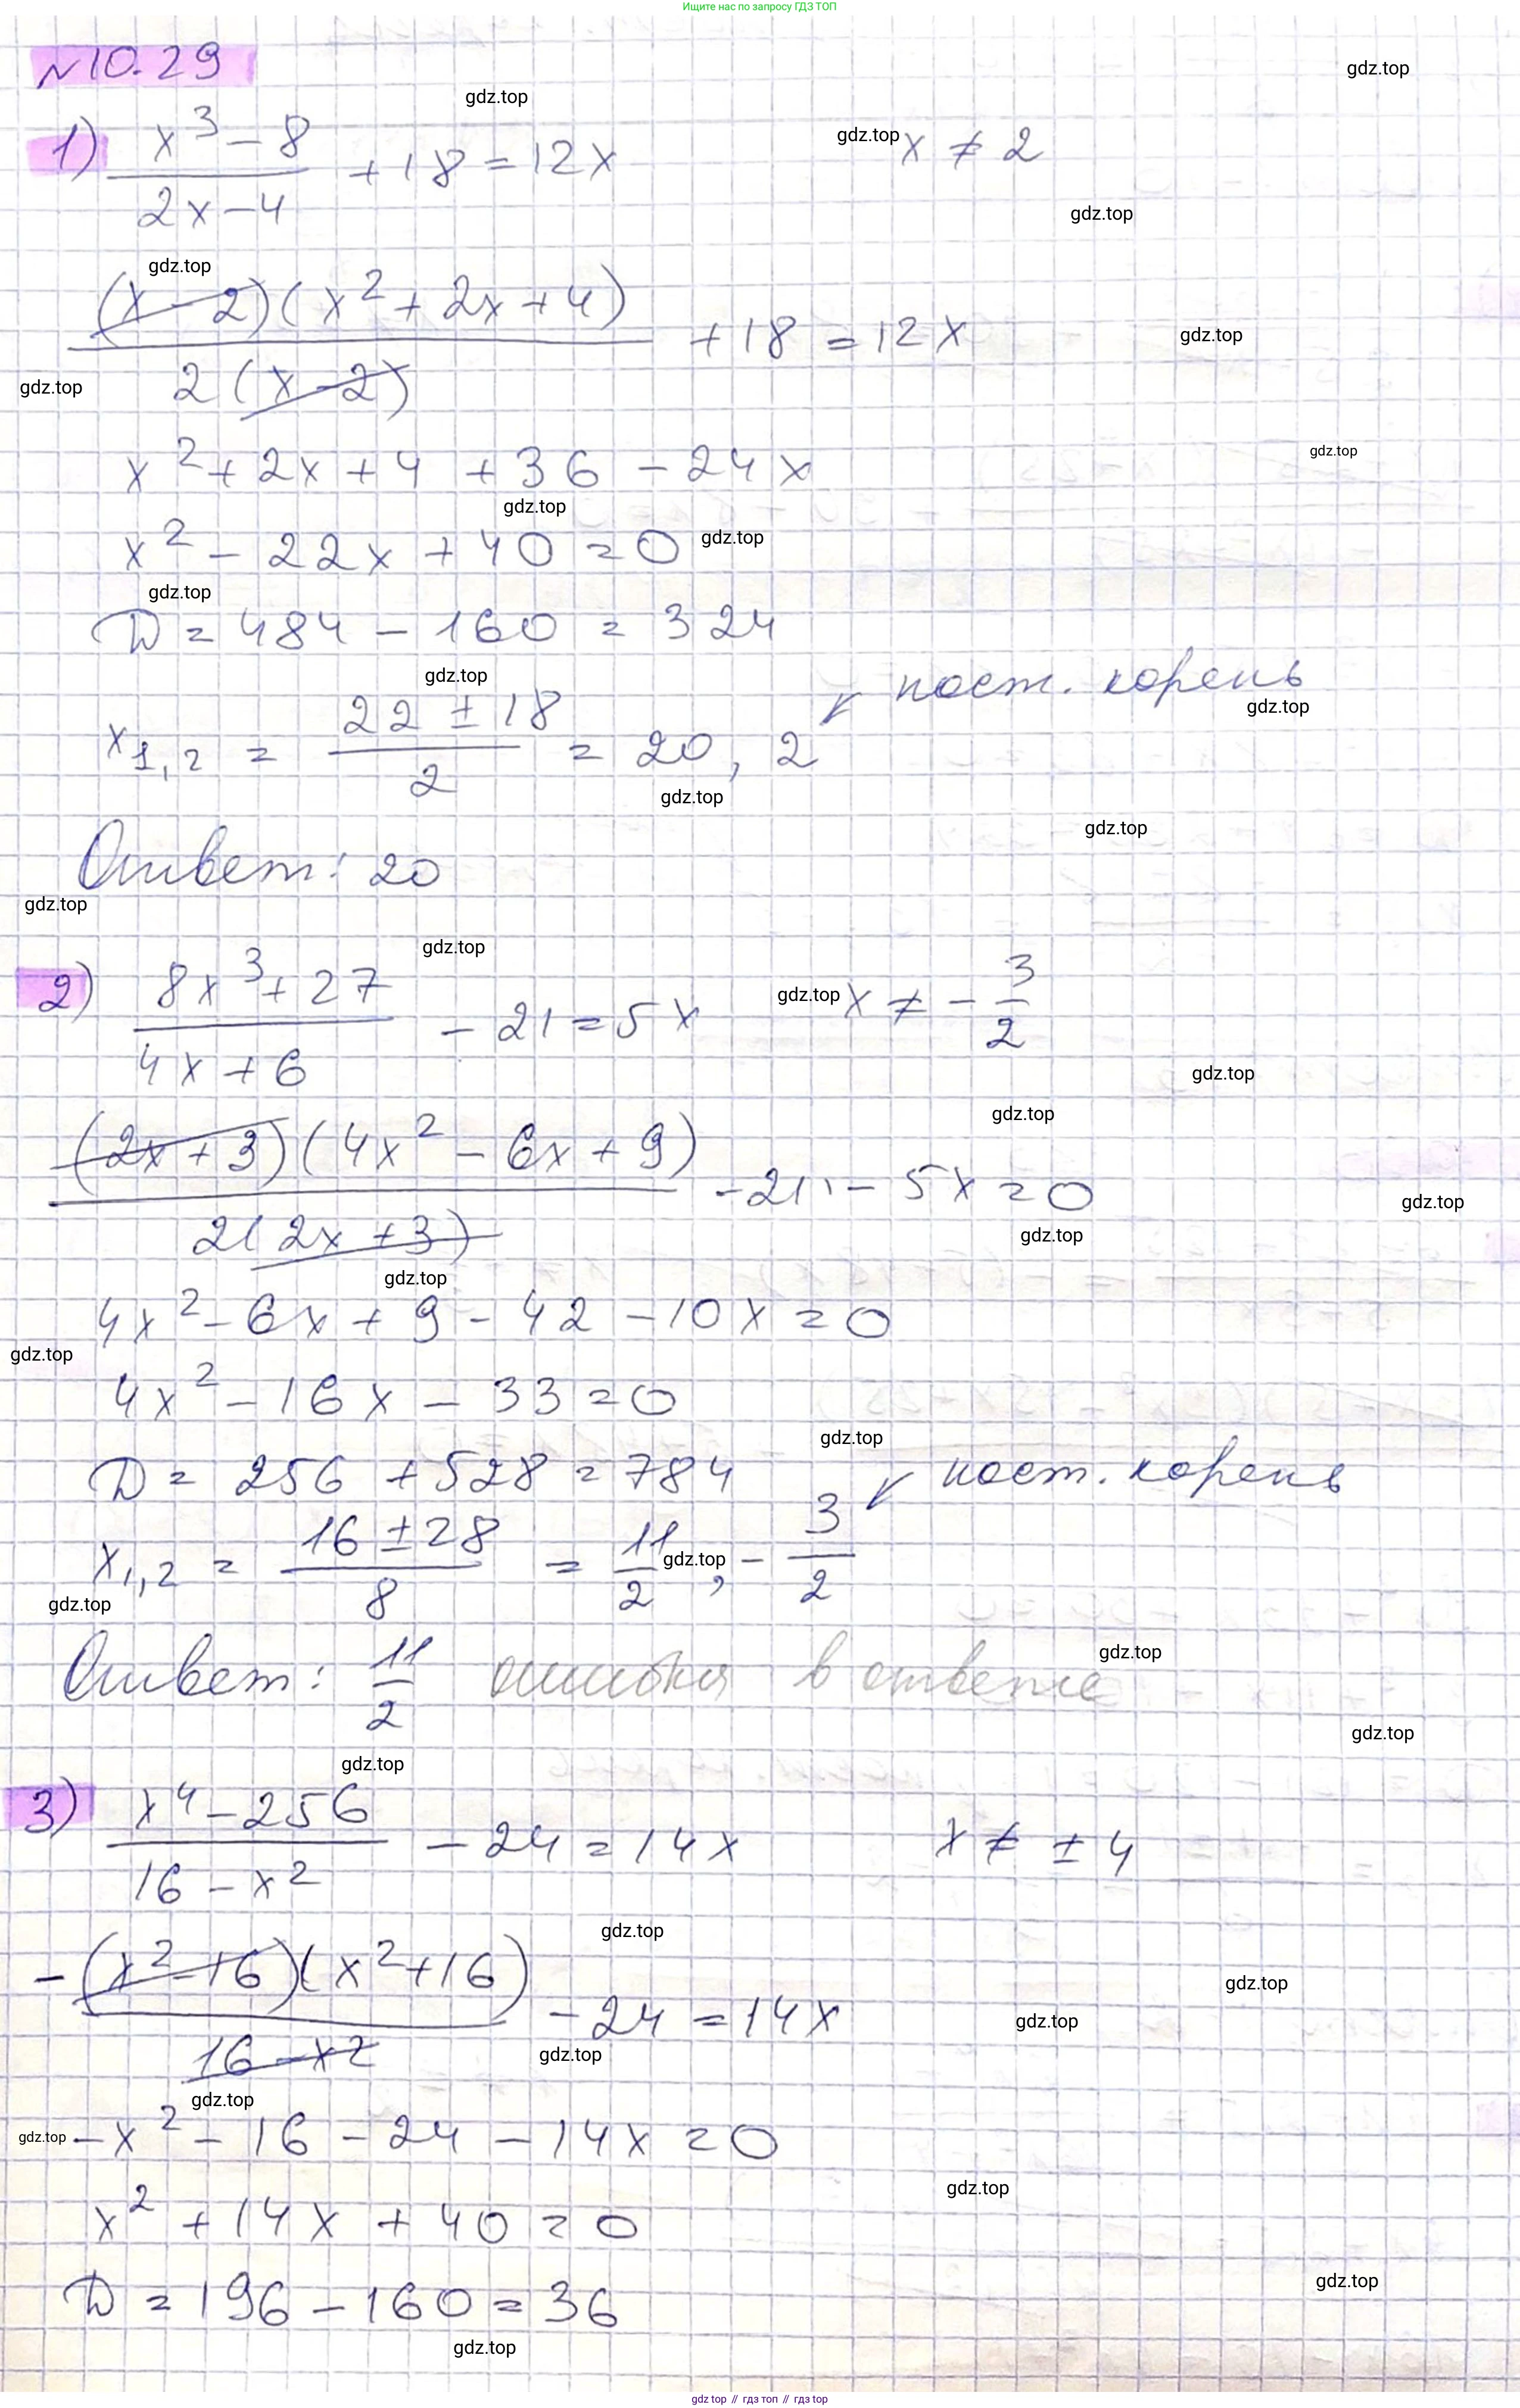 Ищите нас по запросу ГДЗ ТОП
№10.29
1) (x³ - 8)/(2x - 4) + 18 = 12x x ≠ 2
((x - 2)(x² + 2x + 4))/(2(x - 2)) + 18 = 12x
x² + 2x + 4 + 36 - 24x
x² - 22x + 40 = 0
D = 484 - 160 = 324
x₁,₂ = (22 ± 18)/2 = 20, 2 пост. корень
Ответ: 20
2) (8x³ + 27)/(4x + 6) - 21 = 5x x ≠ - 3/2
((2x + 3)(4x² - 6x + 9))/(2(2x + 3)) - 21 - 5x = 0
4x² - 6x + 9 - 42 - 10x = 0
4x² - 16x - 33 = 0
D = 256 + 528 = 784
x₁,₂ = (16 ± 28)/8 = 11/2, - 3/2 пост. корень
Ответ: 11/2 ошибка в ответе
3) (x⁴ - 256)/(16 - x²) - 24 = 14x x ≠ ± 4
- ((x² - 16)(x² + 16))/(16 - x²) - 24 = 14x
- x² - 16 - 24 - 14x = 0
x² + 14x + 40 = 0
D = 196 - 160 = 36
gdz.top // гдз топ // gdz.top